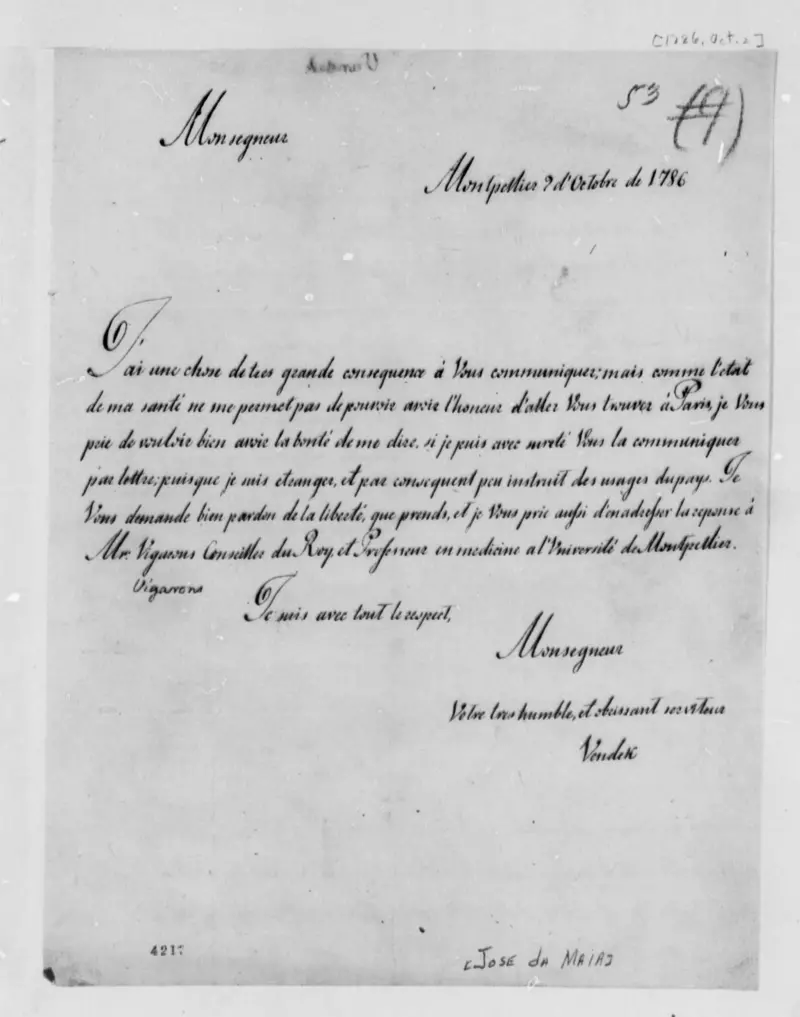 [1786, Oct. 2]
53 (9)
Monsegneur
Montpellier 2 d'Octobre de 1786
J'ai une chose de tres grande consequence à Vous communiquer; mais comme l'etat
de ma santé ne me permet pas de pouvoir avoir l'honeur d'aller Vous trouver à Paris, je Vous
prie de vouloir bien avoir la bonté de me dire, si je puis avec sureté Vous la communiquer
par lettre; puisque je suis etranger, et par consequent peu instruit des usages du pays. Je
Vous demande bien pardon de la liberté, que prends, et je Vous prie aussi d'en adresser la reponse à
Mr. Vigarons Conseiller du Roy, et Professeur en medicine a l'Université de Montpellier.
Vigarons
Je suis avec tout le respect,
Monsegneur
Votre tres humble, et obeissant serviteur
Vendek
4217
[JOSE da MAIA]